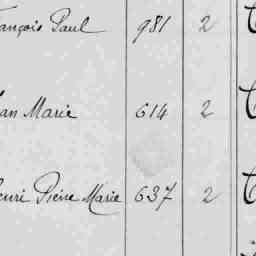 ançois Paul 981 2
an Marie 614 2
enri Pierre Marie 637 2